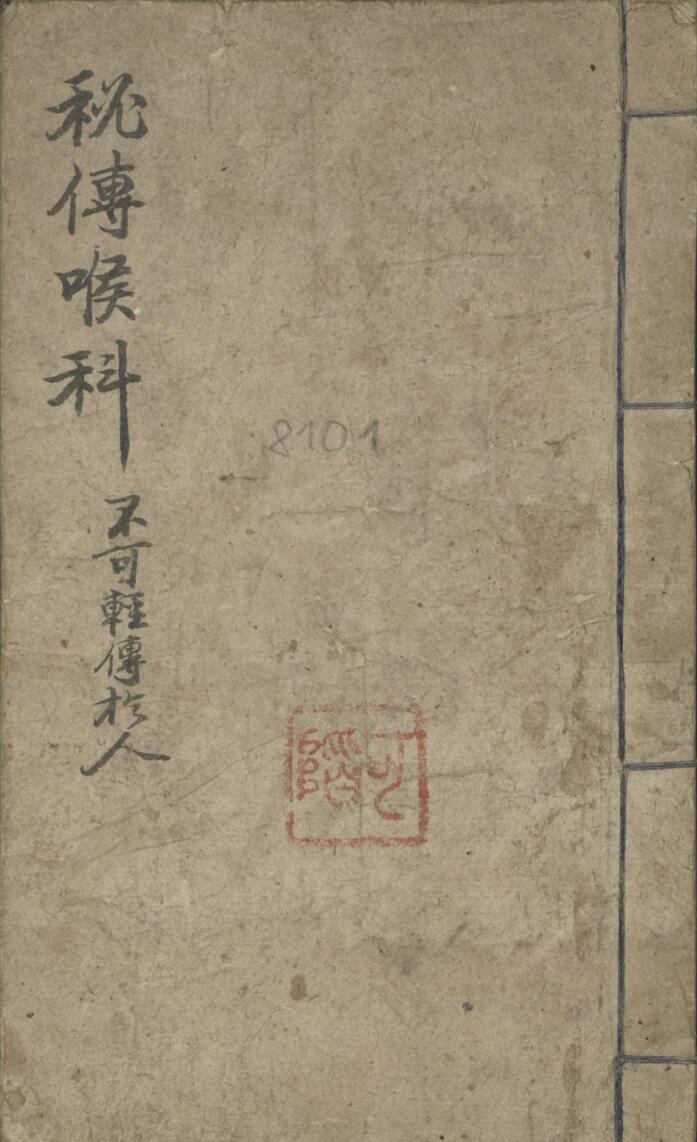 秘傳喉科
不可輕傳於人
8101